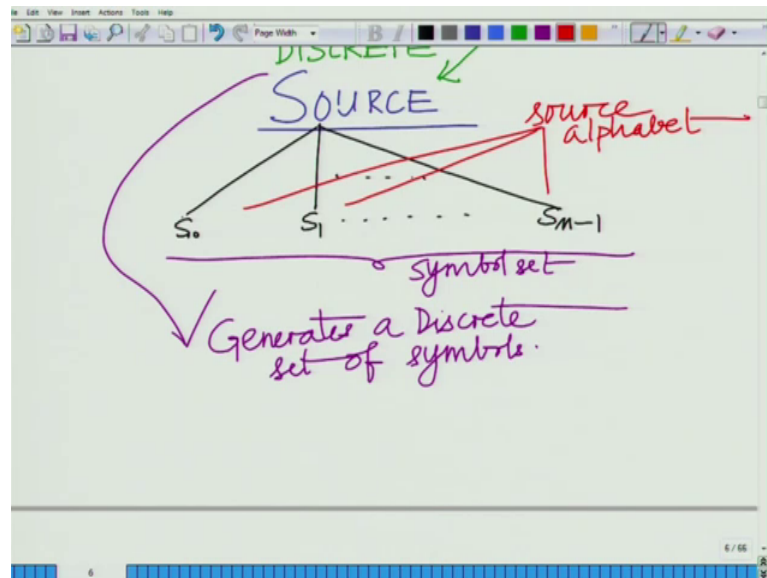 File Edit View Insert Actions Tools Help
Page Width
DISCRETE
SOURCE
source
alphabet
S0 S1 SM-1
symbol set
Generates a Discrete
set of symbols.
6/66
6